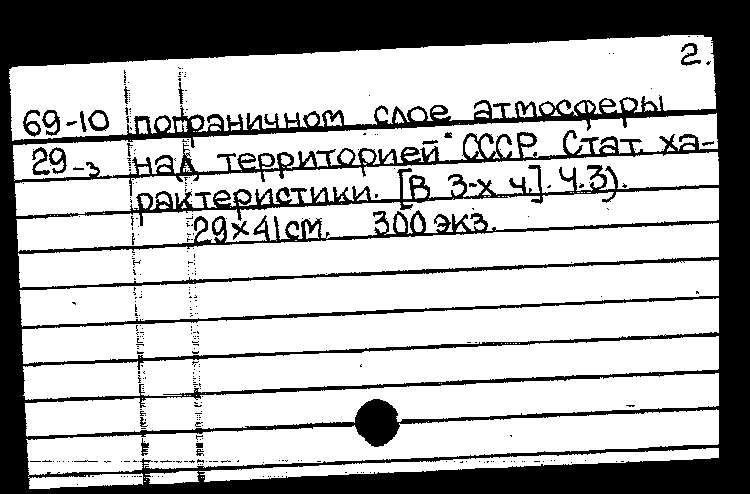 2.
69-10 пограничном слое атмосферы
29-3 над территорией СССР. Стат. ха-
рактеристики. [В 3-х ч.]. Ч.3).
29×41см. 300 экз.